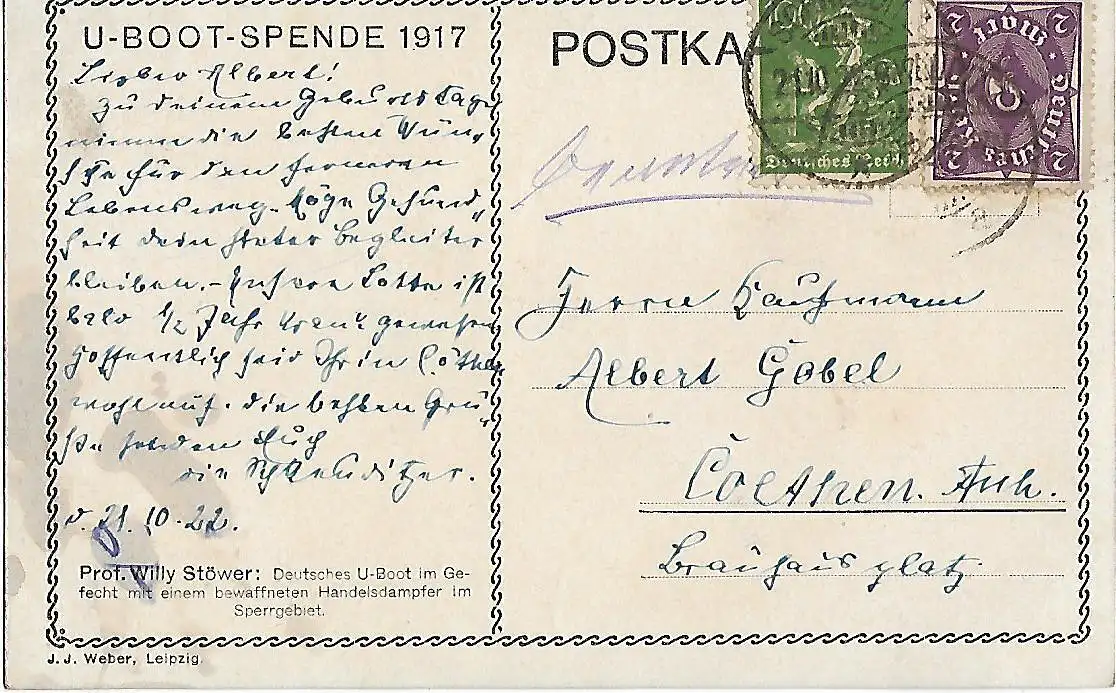 U-BOOT-SPENDE 1917
Lieber Albert!
Zu deinem Geburtstage
nimm die besten Wün-
sche für den ferneren
Lebensweg. Möge Gesund-
heit dein steter Begleiter
bleiben. - Unsere Lotte ist
bald 1/2 Jahr krank gewesen
Hoffentlich seid Ihr in Cöthen
wohlauf. Die besten Grü-
ße senden Euch
die Schkeuditzer.
d. 21.10.22.
Prof. Willy Stöwer: Deutsches U-Boot im Ge-
fecht mit einem bewaffneten Handelsdampfer im
Sperrgebiet.
J. J. Weber, Leipzig.
POSTKA
Deutsches Reich
2 Mark 2
Deutsches Reich
Herrn Kaufmann
Albert Göbel
Coethen. Anh.
Brauhausplatz